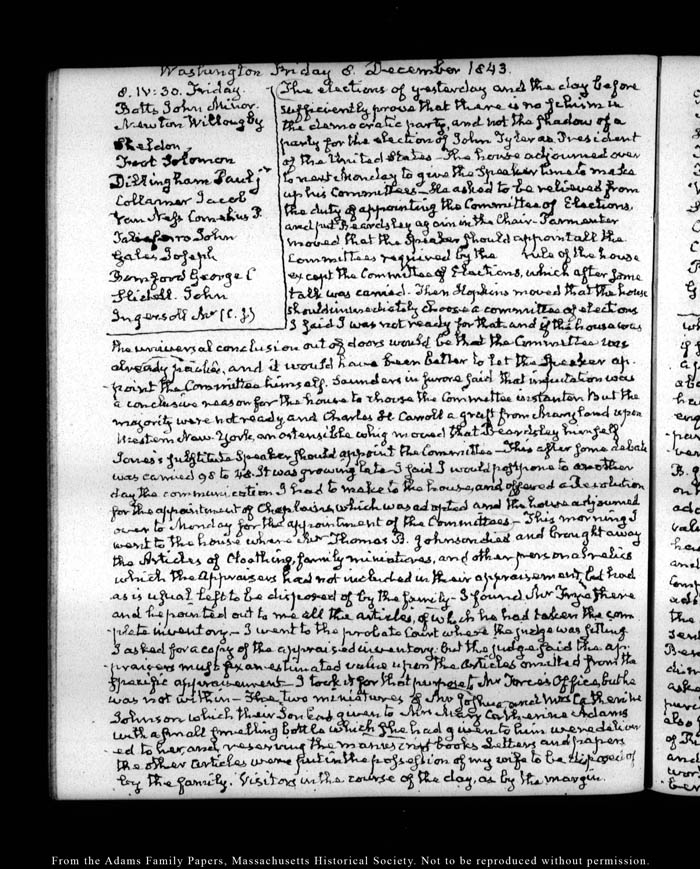 Washington Friday 8. December 1843.
8. IV:30. Friday.
Botts John Minor.
Newton Willoughby
Sheldon
Foot Solomon
Dillingham Paul jr
Collamer Jacob
Van Ness Cornelius P.
Taliaferro John
Gales Joseph
Bomford George C
Slidell. John
Ingersoll Mr (C. J)
The elections of yesterday and the day before
sufficiently prove that there is no schism in
the democratic party, and not the shadow of a
party for the election of John Tyler as President
of the United States — The house adjourned over
to next Monday to give the Speaker time to make
up his Committees. He asked to be relieved from
the duty of appointing the Committee of Elections,
and put Beardsley again in the Chair — Parmenter
moved that the Speaker should appoint all the
Committees required by the rule of the house
except the Committee of Elections, which after some
talk was carried. Then Hopkins moved that the house
should immediately choose a committee of elections
I said I was not ready for that and if the house was
the universal conclusion out of doors would be that the Committee was
already packed, and it would have been better to let the Speaker ap-
-point the Committee himself. Saunders in furore said that imputation was
a conclusive reason for the house to choose the Committee instanter. But the
majority were not ready and Charles H. Carroll a graft from Maryland upon
Western New-York, an ostensible whig moved that Beardsley himself
Jones's substitute Speaker should appoint the Committee — This after some debate
was carried 98 to 48. It was growing late I said I would postpone to another
day the communication I had to make to the house, and offered a Resolution
for the appointment of Chaplains, which was adopted and the house adjourned
over to Monday for the appointment of the Committees — This morning I
went to the house where Mr Thomas B. Johnson died and brought away
the Articles of Cloathing, family miniatures, and other personal relics
which the Appraisers had not included in their appraisement, but had
as is usual left to be disposed of by the family — I found Mr Frye there
and he pointed out to me all the articles, of which he had taken the com-
-plete inventory — I went to the probate Court where the judge was sitting
I asked for a copy of the appraised inventory: but the judge said the ap-
-praisers must fix an estimated value upon the Articles omitted from the
specific appraisement — I took it for that purpose to Mr Force's Office, but he
was not within — The two miniatures of Mr Joshua and Mrs Catherine
Johnson which their Son has given to Mrs Mary Catherine Adams
with a small smelling bottle which She had given to him were deliver-
-ed to her, and, reserving the manuscript books Letters and papers
the other articles were put in the possession of my wife to be disposed of
by the family. Visitors in the course of the day, as by the margin.
From the Adams Family Papers, Massachusetts Historical Society. Not to be reproduced without permission.